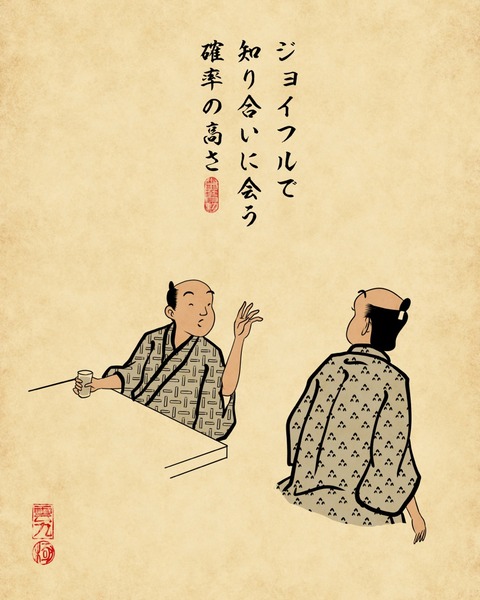 ジョイフルで
知り合いに会う
確率の高さ